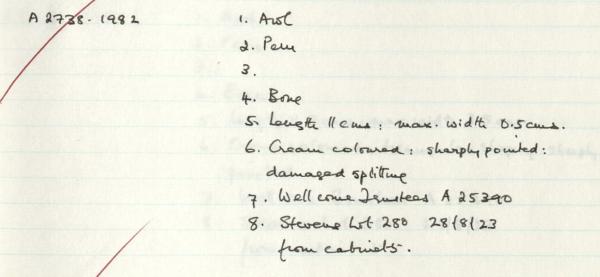 A 2738. 1982
1. Awl
2. Peru
3.
4. Bone
5. Length 11 cms : max. width 0.5cms.
6. Cream coloured : sharply pointed :
damaged splitting
7. Wellcome Trustees A 25390
8. Stevens Lot 280 28/8/23
from cabinets.